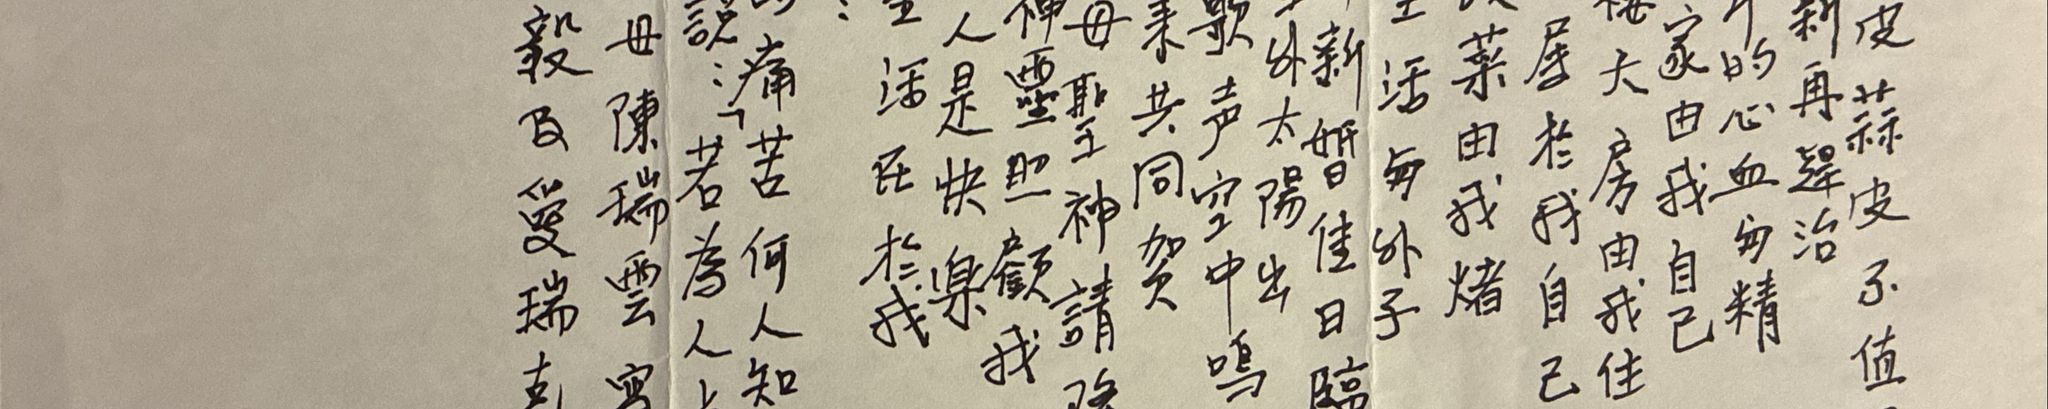 皮蒜皮不值
新再趕治
的心血每精
家由我自己
樓大房由我住
居於我自己
菜由我煮
生活每外子
新婚佳日臨
外太陽出
歌声空中鳴
來共同贺
母聖神請
神靈照顧我
人是快樂
生活在於我
痛苦何人知
說：「若為人
母陳瑞雲寫
毅及愛瑞克